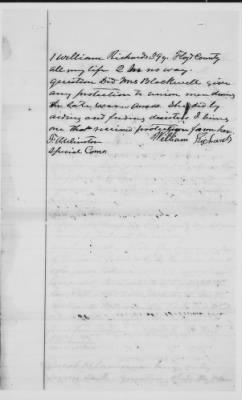 1 William Richards 39 yr. Floyd County
all my life 2 In no way.
question Did Mrs Blackwell give
any protection to union men during
the late war Answ. She did by
aiding and feeding deserters I being
one that received protection from her
William Richards
Special Com.